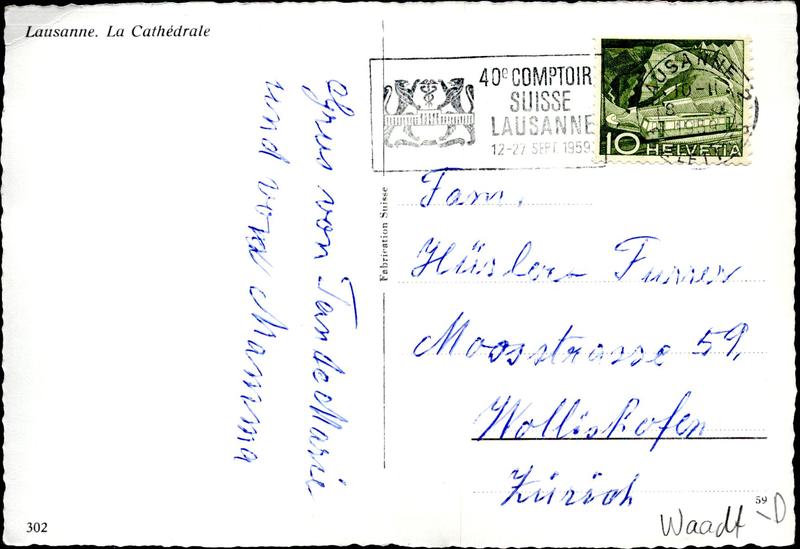 Lausanne. La Cathédrale
Gruss von Tande Marie
und von Mamma
Fabrication Suisse
40e COMPTOIR
SUISSE
LAUSANNE
12-27 SEPT. 1959
LAUSANNE
10 HELVETIA
Fam.
Hürler Furrer
Moosstrasse 59,
Wollishofen
Zürich
302
59
Waadt -D